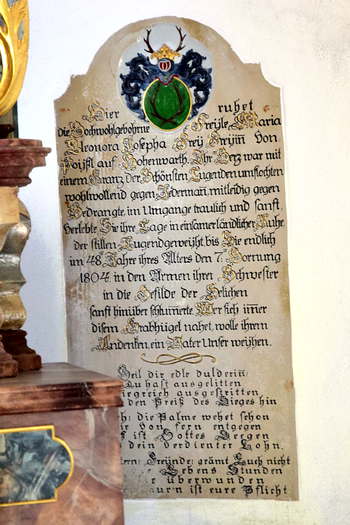 Hier ruhet
Die Hochwohlgebohrne Freÿle Maria
Eleonora Josepha Freÿ Freÿin Von
Poißl auf Hohenwarth. Ihr Herz war mit
einem Kranz der Schönsten Tugenden umflochten
wohltwollend gegen Jederman, mitleidig gegen
Bedrangte, im Umgange traulich und sanft.
Verlebte Sie ihre Tage in einsamer ländlicher Ruhe
der stillen Tugend geweÿht, bis Sie endlich
im 48 Jahre ihres Alters den 7. Hornung
1804 in den Armen ihrer Schwester
in die Gefilde der Selichen
sanft hinüber schlumerte. Wer sich imer
disem Grabhügel nahet, wolle ihrem
Andenken, ein Vater Unser weÿhen.
Heil dir edle dulderin:
Du hast ausgelitten
Siegreich ausgestritten
den Preiß des Sieges hin
die Palme wehet schon
dir von fern entgegen
ist Gottes Seegen
dein verdienter Lohn.
Freünde: gramt Euch nicht
Lebens Stunden
überwunden
ist eure Pflicht